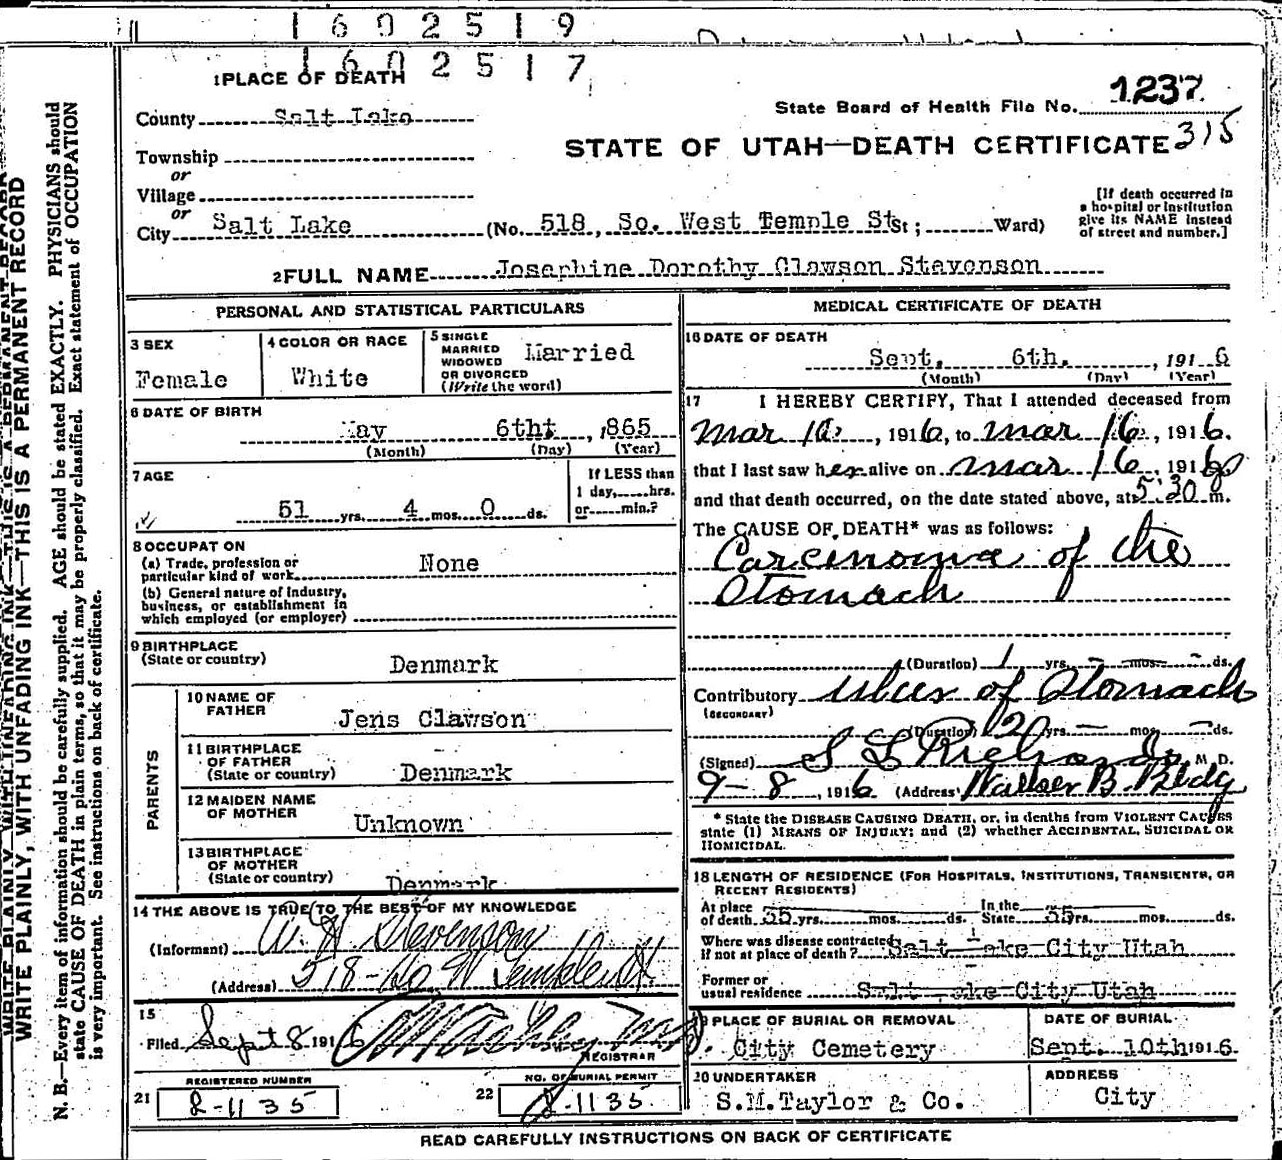 1602519
1602517
1 PLACE OF DEATH
State Board of Health File No. 1237
County Salt Lake
STATE OF UTAH—DEATH CERTIFICATE 315
Township
or
Village
or
City Salt Lake (No. 518, So. West Temple St St; Ward)
[If death occurred in
a hospital or institution
give its NAME instead
of street and number.]
2 FULL NAME Josephine Dorothy Clawson Stevenson
PERSONAL AND STATISTICAL PARTICULARS
3 SEX
Female
4 COLOR OR RACE
White
5 SINGLE
MARRIED
WIDOWED
OR DIVORCED
(Write the word)
Married
6 DATE OF BIRTH
May 6th, 1865
(Month) (Day) (Year)
7 AGE
51 yrs. 4 mos. 0 ds.
If LESS than
1 day,......hrs.
or......min.?
8 OCCUPATION
(a) Trade, profession or
particular kind of work None
(b) General nature of Industry,
business, or establishment in
which employed (or employer)
9 BIRTHPLACE
(State or country) Denmark
PARENTS
10 NAME OF
FATHER Jens Clawson
11 BIRTHPLACE
OF FATHER
(State or country) Denmark
12 MAIDEN NAME
OF MOTHER Unknown
13 BIRTHPLACE
OF MOTHER
(State or country) Denmark
14 THE ABOVE IS TRUE TO THE BEST OF MY KNOWLEDGE
(Informant) W H Stevenson
(Address) 518-So W Temple St
15
Filed Sept 8 1916
REGISTRAR
REGISTERED NUMBER
21 2-1135
NO. OF BURIAL PERMIT
22 2-1135
MEDICAL CERTIFICATE OF DEATH
16 DATE OF DEATH
Sept. 6th. , 1916
(Month) (Day) (Year)
17 I HEREBY CERTIFY, That I attended deceased from
Mar 16, 1916, to Mar 16, 1916.
that I last saw her alive on Mar 16, 1916
and that death occurred, on the date stated above, at 5:30 m.
The CAUSE OF DEATH* was as follows:
Carcinoma of the
Stomach
(Duration) 1 yrs. – mos. – ds.
Contributory Ulcer of Stomach
(SECONDARY)
(Duration) 20 yrs. – mos. – ds.
(Signed) S L Richards M. D.
9-8, 1916 (Address) Walker B. Bldg
* State the DISEASE CAUSING DEATH, or, in deaths from VIOLENT CAUSES
state (1) MEANS OF INJURY; and (2) whether ACCIDENTAL, SUICIDAL OR
HOMICIDAL.
18 LENGTH OF RESIDENCE (FOR HOSPITALS, INSTITUTIONS, TRANSIENTS, OR
RECENT RESIDENTS)
At place
of death 35 yrs. mos. ds.
In the
State 35 yrs. mos. ds.
Where was disease contracted
If not at place of death? Salt Lake City Utah
Former or
usual residence Salt Lake City Utah
19 PLACE OF BURIAL OR REMOVAL
City Cemetery
DATE OF BURIAL
Sept. 10th 1916.
20 UNDERTAKER
S.M.Taylor & Co.
ADDRESS
City
READ CAREFULLY INSTRUCTIONS ON BACK OF CERTIFICATE
WRITE PLAINLY, WITH UNFADING INK—THIS IS A PERMANENT RECORD
N. B.—Every item of information should be carefully supplied. AGE should be stated EXACTLY. PHYSICIANS should
state CAUSE OF DEATH in plain terms, so that it may be properly classified. Exact statement of OCCUPATION
is very important. See instructions on back of certificate.